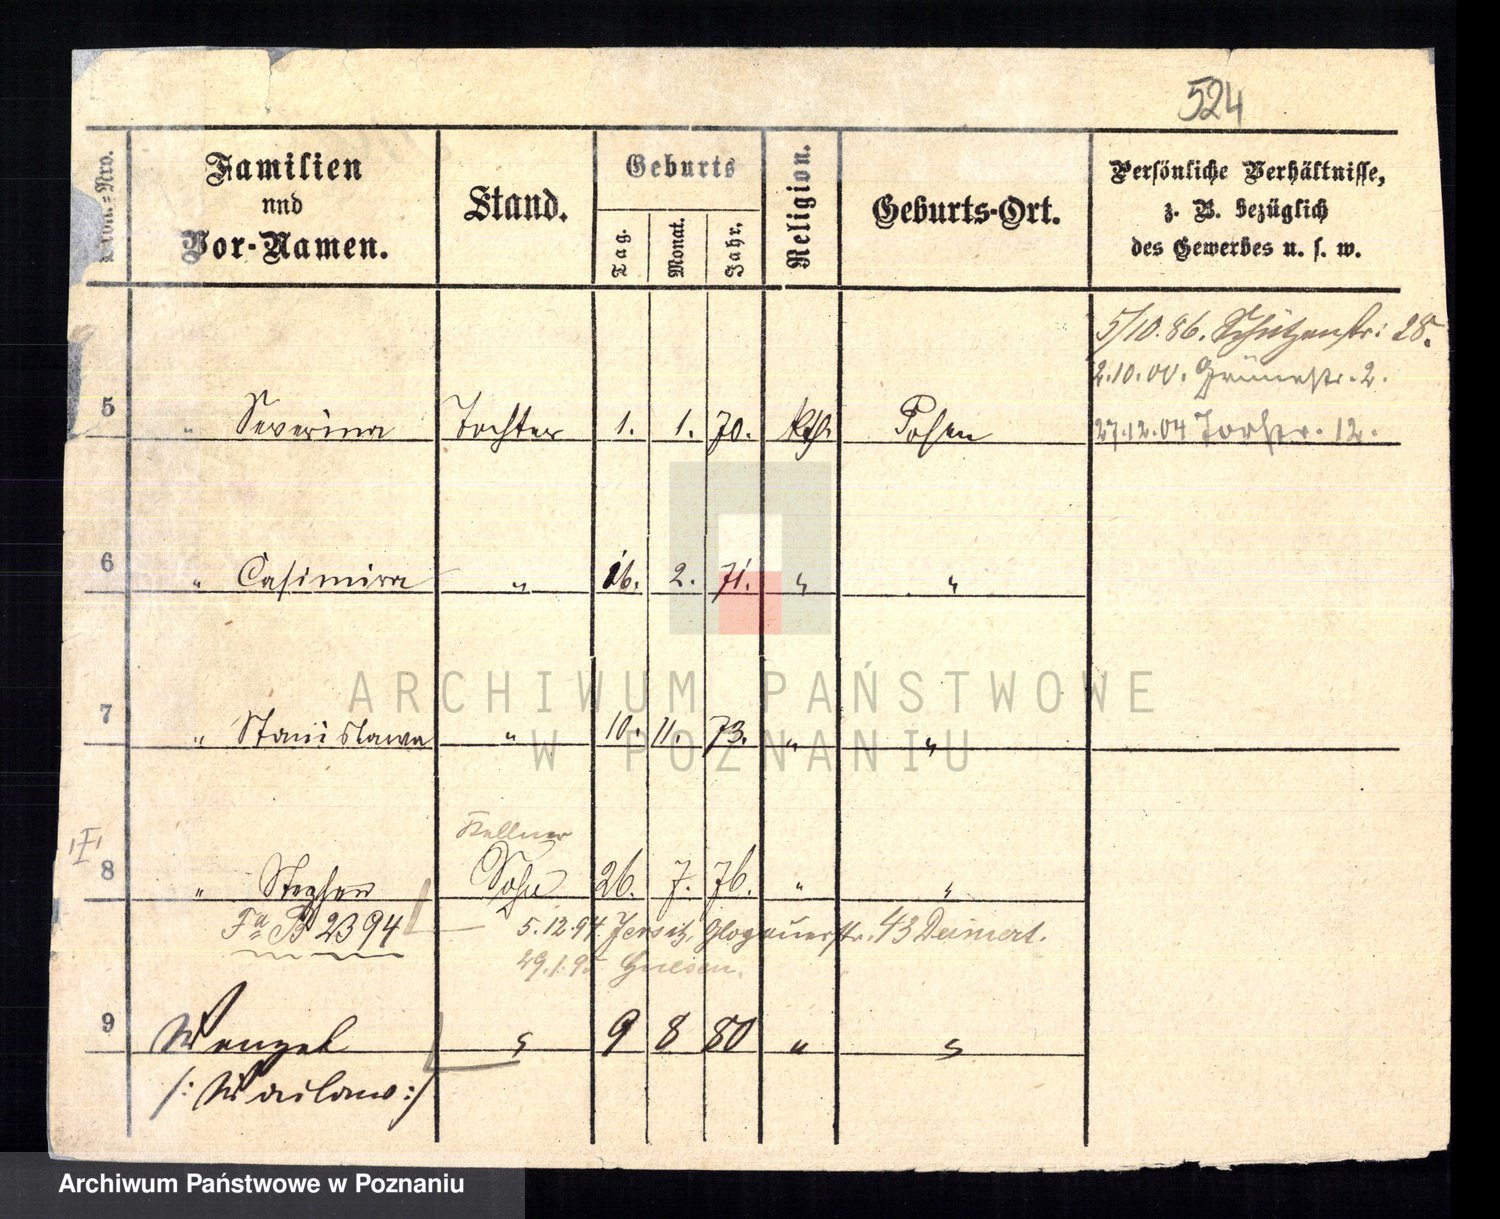 524
Familien
und
Vor-Namen.
Stand.
Geburts
Tag.
Monat.
Jahr.
Religion.
Geburts-Ort.
Persönliche Verhältnisse,
z. B. bezüglich
des Gewerbes u. s. w.
5/10.86. Schützenstr: 28.
2.10.00. Grünestr. 2.
27.12.04 Torstr. 12.
5 " Severina Tochter 1. 1. 70. kth. Posen
6 " Casimira " 16. 2. 71. " "
7 " Stanislawa " 10. 11. 73. " "
Kellner
8 " Stephan Sohn 26. 7. 76. " "
Fa B 2394
5.12.94. Jersitz, Glogauerstr. 43
29.1.95 Gnesen.
9 Wenzel " 9 8 80 " "
/: Waclaw :/
ARCHIWUM PAŃSTWOWE
W POZNANIU
Archiwum Państwowe w Poznaniu